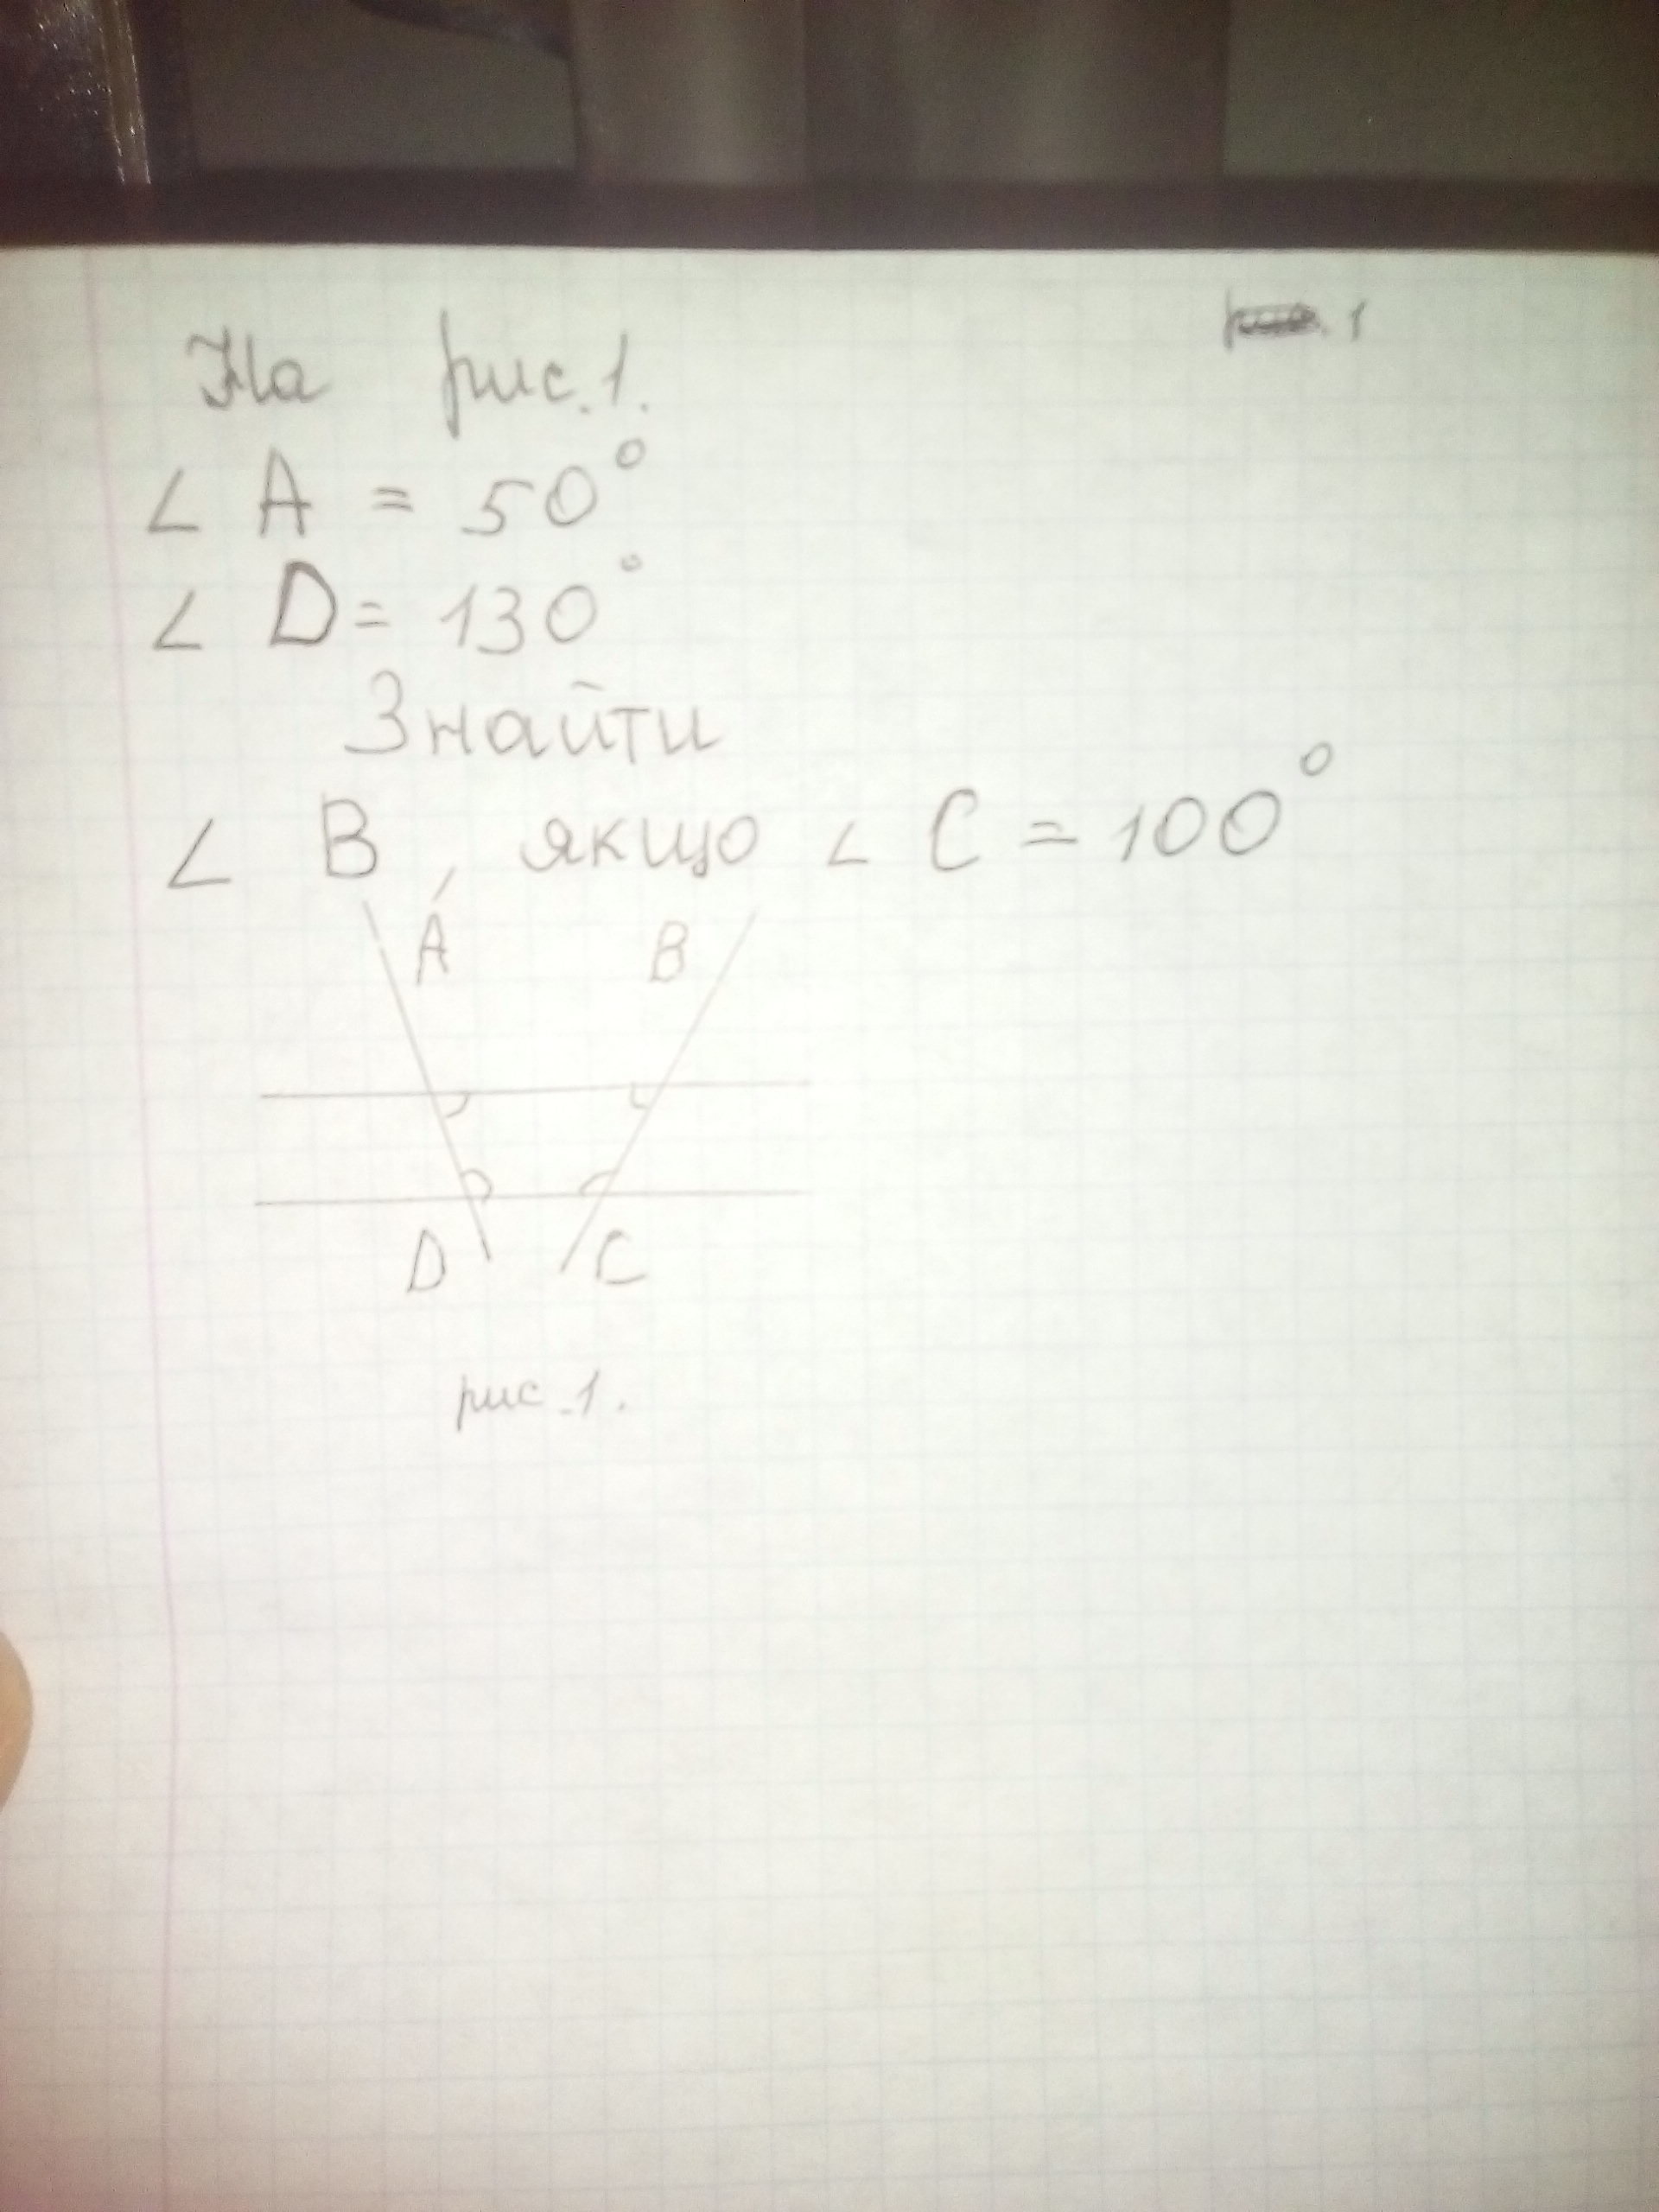 1
На рис.1.
∠ A = 50°
∠ D = 130°
Знайти
∠ B, якщо ∠ C = 100°
A B
D C
рис.1.